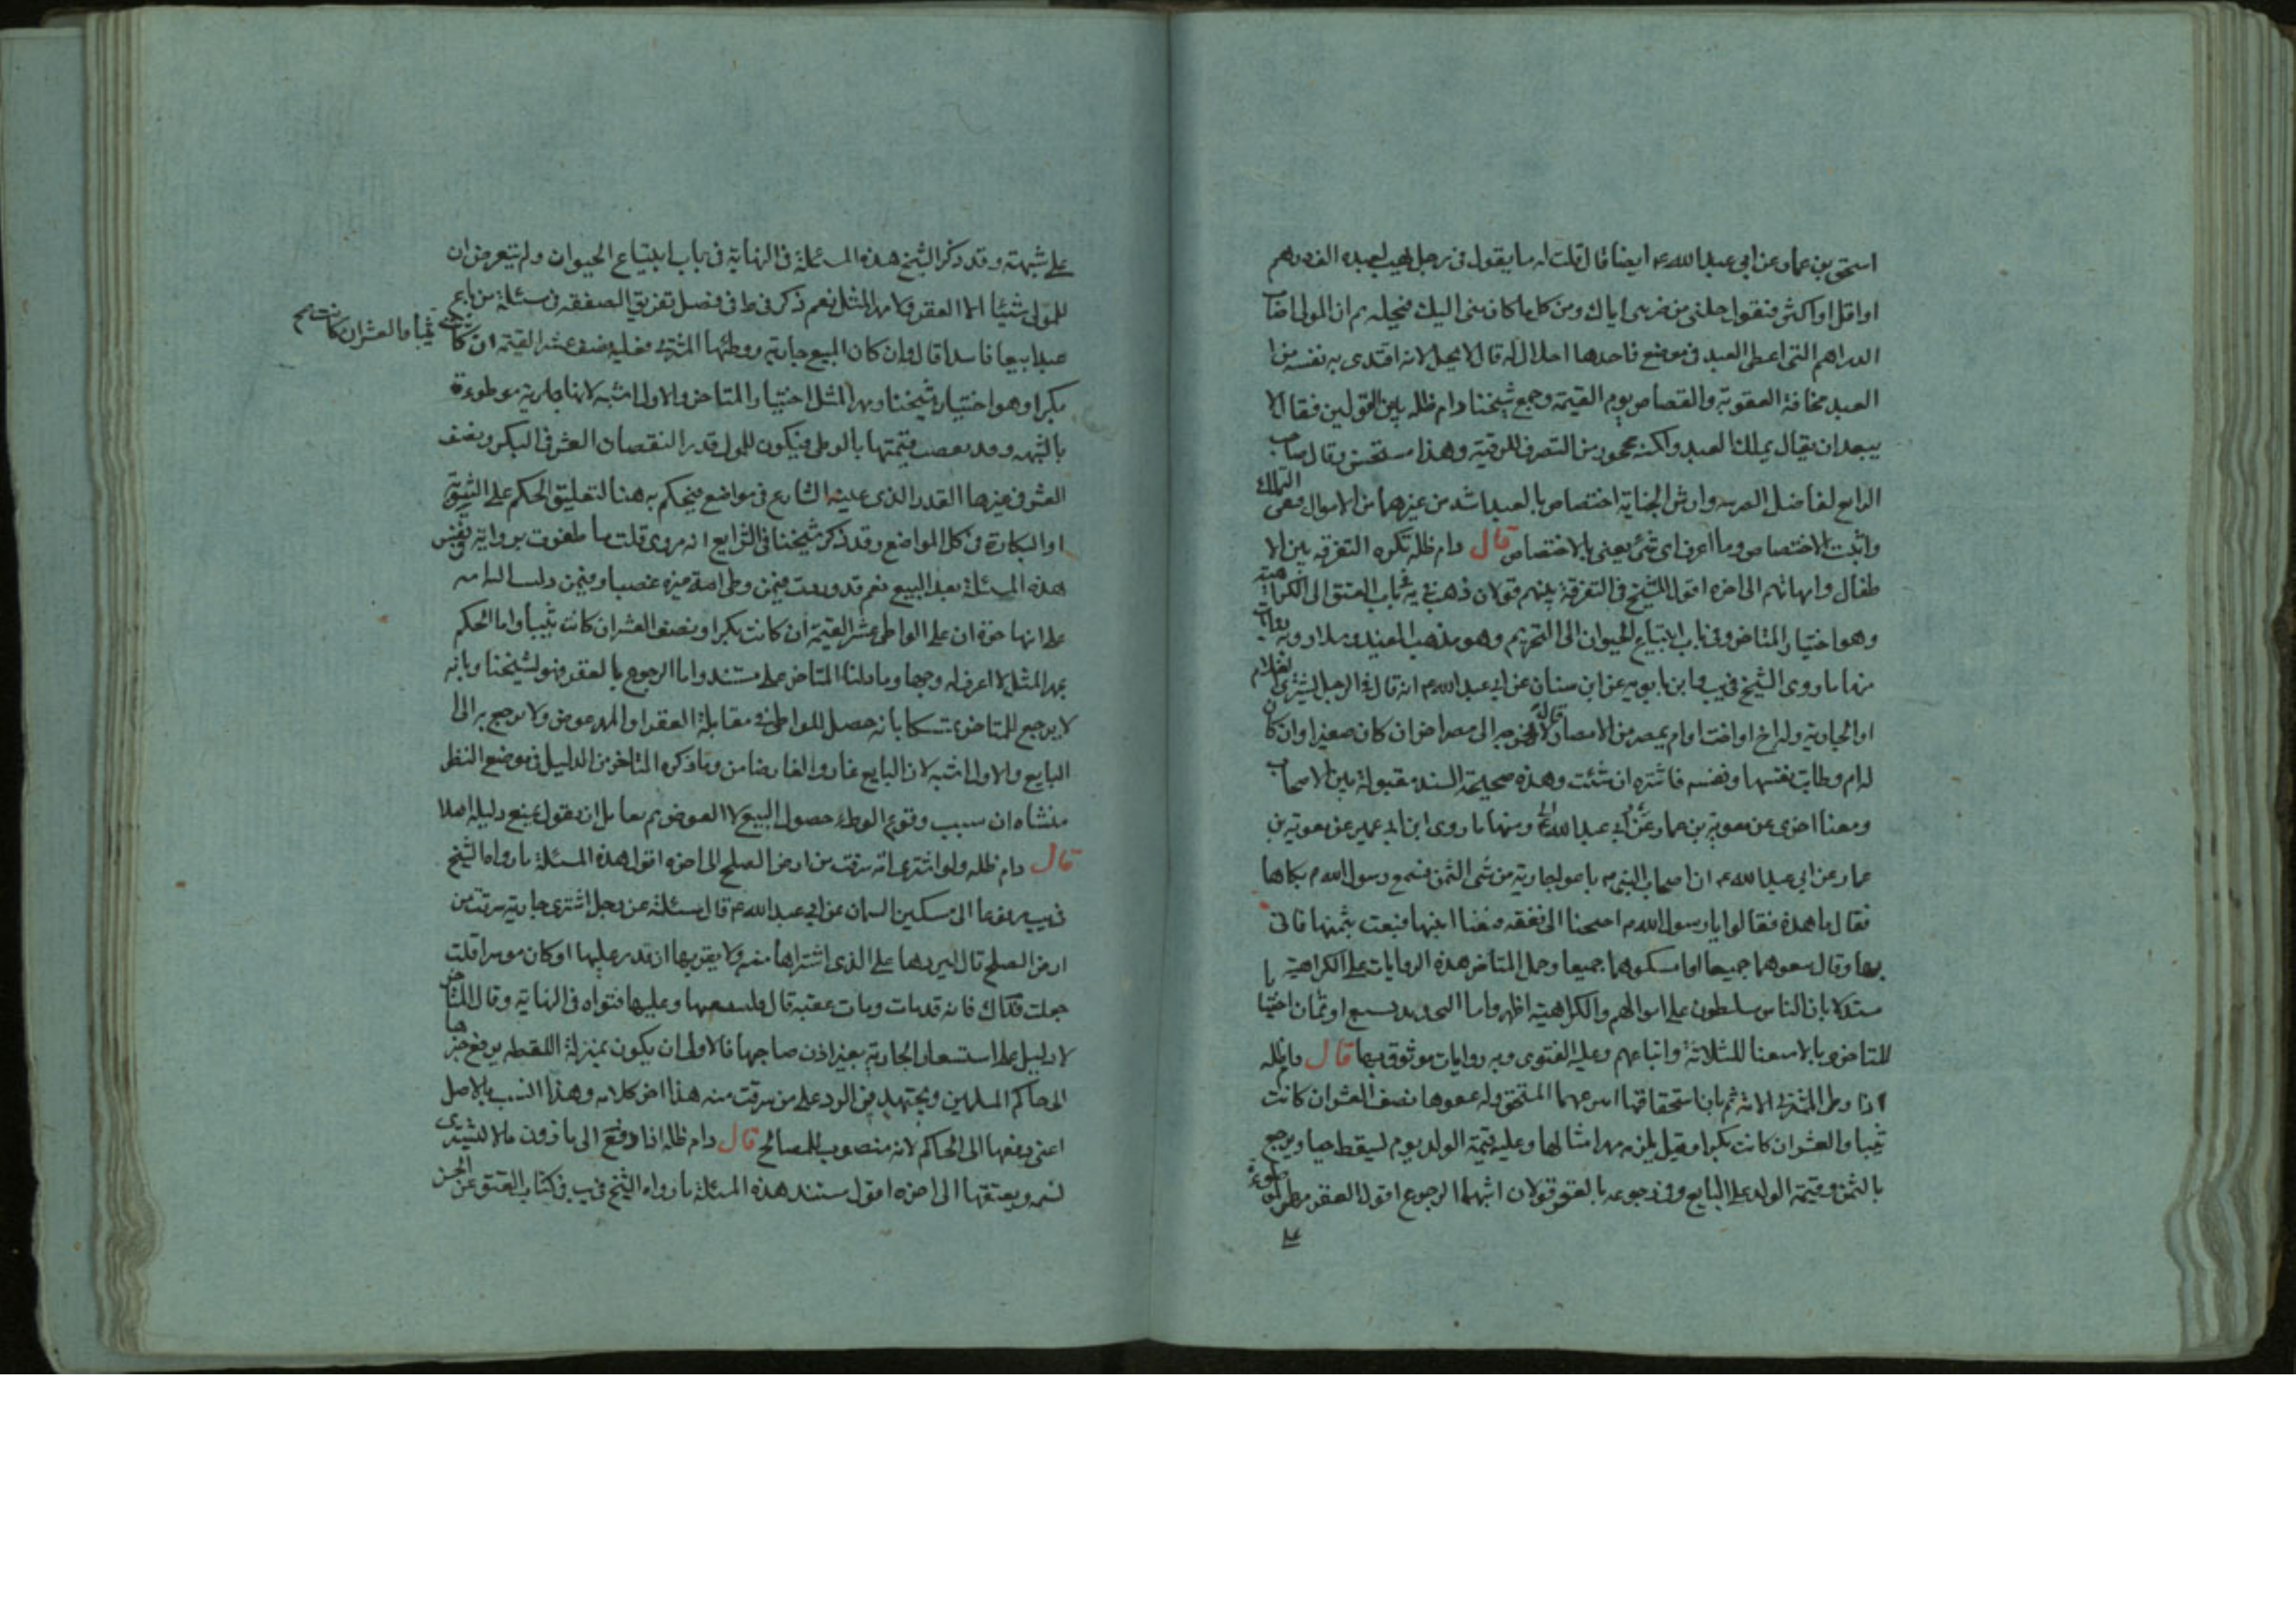 اسحق بن عمار عن ابي عبد الله ع ايضا قال قلت له ما يقول في رجل يهب لعبده الف درهم
او اقل او اكثر فيقول حللني من ضربي اياك ومن كل ما كان مني اليك فيحلله ثم ان المولى اصاب
الدراهم التي اعطى العبد في موضع فاخذها احلال له قال لا يحل لانه افتدى به نفسه من
العبد مخافة العقوبة والقصاص يوم القيمة وجمع شيخنا دام ظله بين القولين فقال لا
يبعد ان يقال يملك العبد ولكنه محجور من التصرف للرقية وهذا مستحسن وقال صاحب
الرابع لفاضل الضريبه وارش الجناية اختصاص بالعبد اشد من غيرهما من الاموال فنفى التملك
واثبت الاختصاص وما اعرف اى شئ يعنى بالاختصاص قال دام ظله تكره التفرقه بين الا
طفال وامهاتهم الى اخره اقول للشيخ في التفرقة بينهم قولان ذهب في يه في باب العتق الى الكراهية
وهو اختيار المتاخر وفي باب ابتياع الحيوان الى التحريم وهو مذهب المفيد وسلار وبه روايات
منها ما روى الشيخ في يب وابن بابويه عن ابن سنان عن ابي عبد الله ع انه قال في الرجل يشترى الغلام
او الجارية وله اخ او اخت او ام بمصر من الامصار قال لا يخرجه الى مصر اخر ان كان صغيرا وان كان
له ام وطابت نفسها ونفسه فاشتره ان شئت وهذه صحيحة السند مقبولة بين الاصحاب
ومعنا اخرى عن معوية بن عمار عن ابي عبد الله ع ومنها ما روى ابن ابي عمير عن معوية بن
عمار عن ابي عبد الله ع ان اصحاب النبي ص باعوا جارية من سبي اليمن فسمع رسول الله ص بكاها
فقال ما هذه فقالوا يا رسول الله ص احتجنا الى نفقه فبعنا ابنها فبعث بثمنها فاتى
بها وقال بيعوهما جميعا او امسكوهما جميعا وحمل المتاخر هذه الروايات على الكراهية
مستدلا بان الناس مسلطون على اموالهم والكراهية اظهر واما التحديد بسبع او ثمان اختيا
للمتاخر وبالاستغنا للثلاثة واتباعهم وعليه الفتوى وبه روايات موثوق بها قال دام ظله
اذا وطى المشترى الامة ثم بان استحقاقها انتزعها المستحق وله عقرها نصف العشر ان كانت
ثيبا والعشر ان كانت بكرا وقيل يلزمه مهر امثالها وعليه قيمة الولد يوم سقط حيا ويرجع
بالثمن وقيمة الولد على البايع وفي رجوعه بالعقر قولان اشبههما الرجوع اقول العقر مهر الموطوءة
على شبهة وقد ذكر الشيخ هذه المسئلة في النهاية في باب ابتياع الحيوان ولم يتعرض ان
للمولى شيئا الا العقر ولا مهر المثل نعم ذكر في ط في فصل تفريق الصفقه في مسئلة من باع
عبدا بيعا فاسدا قال وان كان المبيع جارية ووطئها المشترى فعليه نصف عشر القيمة ان كانت ثيبا والعشر ان كانت
بكرا وهو اختيار شيخنا ومهر المثل اختيار المتاخر والاول اشبه لانها جارية موطوءة
بالشبهه وقد نقصت قيمتها بالوطى فيكون للمولى قدر النقصان العشر في البكر ونصف
العشر في غيرها القدر الذى عينه الشارع في مواضع فيحكم به هنا لتعليق الحكم على الثيوبة
او البكارة في كل المواضع وقد ذكر شيخنا في الشرايع انه مروى قلت ما ظفرت برواية في نفس
هذه المسئلة بعد التتبع نعم قد وردت فيمن وطى امة غيره غصبا وفيمن دلست امه
على انها حرة ان على الواطى عشر القيمة ان كانت بكرا ونصف العشر ان كانت ثيبا واما الحكم
بمهر المثل لا اعرف له وجها وما دلنا المتاخر على مستند واما الرجوع بالعقر فهو لشيخنا وبانه
لا يرجع للمتاخر تمسكا بانه حصل للواطى في مقابلة العقر او المهر عوض ولا يرجع به الى
البايع والاول اشبه لان البايع غار والغار ضامن وما ذكره المتاخر من الدليل في موضع النظر
منشاه ان سبب وقوع الوطء حصول البيع لا العوض ثم لقائل ان يقول بمنع دليله اصلا
قال دام ظله ولو اشترى امة سرقت من ارض الصلح الى اخره اقول هذه المسئلة ما رواها الشيخ
في يب مرفوعا الى مسكين السمان عن ابي عبد الله ع قال سئلته عن رجل اشترى جارية سرقت من
ارض الصلح قال ليردها على الذى اشتراها منه ولا يقربها ان قدر عليها او كان موسرا قلت
جعلت فداك فانه قد مات ومات عقبه قال فليستسعها وعليها فتواه في النهاية وقال المتاخر
لا دليل على استسعاء الجارية بغير اذن صاحبها فالاولى ان يكون بمنزلة اللقطه يرفع خبرها
الى حاكم المسلمين ويجتهد في الرد على من سرقت منه هذا اخر كلامه وهذا انسب بالاصل
اعنى دفعها الى الحاكم لانه منصوب للمصالح قال دام ظله اذا دفع الى ماذون مالا ليشترى
نسمه ويعتقها الى اخره اقول مستند هذه المسئلة ما رواه الشيخ في يب في كتاب العتق عن الحسن